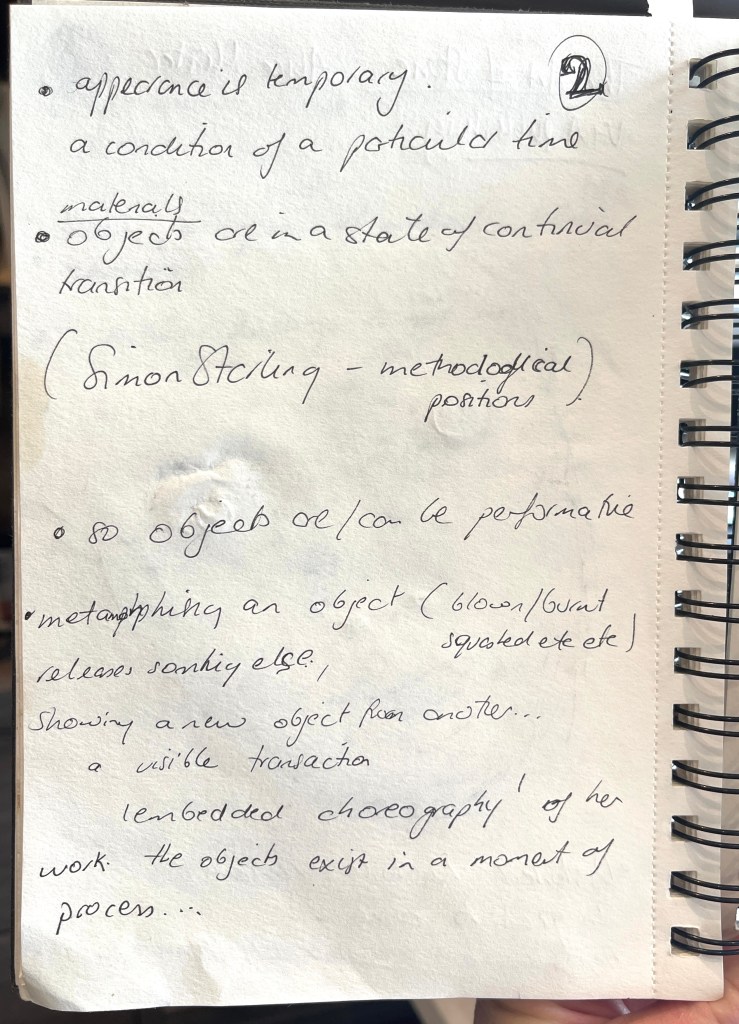 2
• appearance is temporary.
a condition of a particular time
materials
• objects are in a state of continual
transition
(Simon Starling – methodological
positions)
• so objects are/can be performative
• metamorphising an object (blown/burnt
squashed etc etc)
releases something else,
showing a new object from another...
a visible transaction
'embedded choreography' of her
work. the objects exist in a moment of
process....